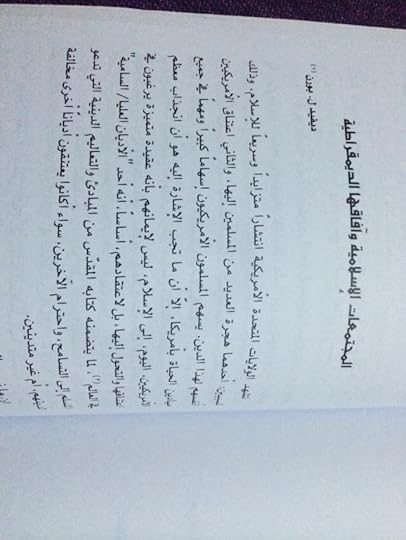 المجتمعات الإسلامية وآفاقها الديمقراطية
ديفيد ل. بورن (١)
تشهد الولايات المتحدة الأمريكية انتشاراً متزايداً وسريعاً للإسلام، وذلك
لسببين: أحدهما هجرة العديد من المسلمين إليها، والثاني اعتناق الأمريكيين
أنفسهم لهذا الدين. يسهم المسلمون الأمريكيون إسهاماً كبيراً ومهماً في جميع
ميادين الحياة بأمريكا. إلا أن ما تجب الإشارة إليه هو أن انجذاب معظم
الأمريكيين، اليوم، إلى الإسلام، ليس لإيمانهم بأنه عقيدة متميزة يرغبون في
اعتناقها والتحول إليها، بل لاعتقادهم، أساساً، أنه أحد "الأديان العليا/ السامية"
في العالم (٢)، لما يتضمنه كتابه المقدّس من المبادئ والتعاليم الدينية التي تدعو
إلى التسامح، واحترام الآخرين، سواء أكانوا يعتنقون أدياناً أخرى مخالفة
لدينهم أم غير متدينين.